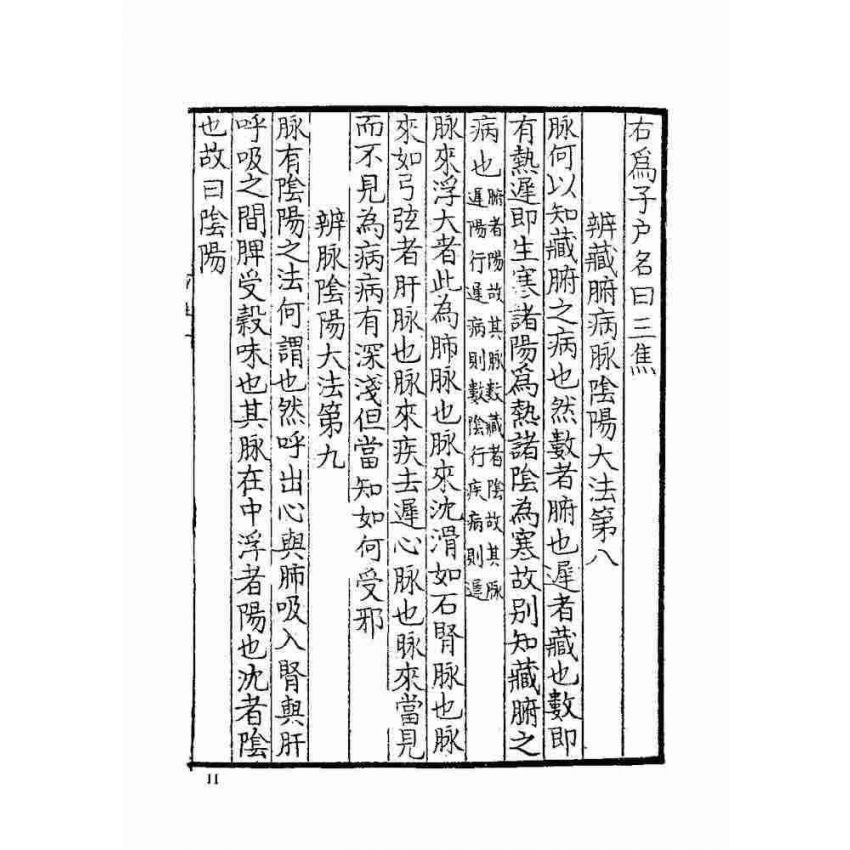 右爲子户名曰三焦
辨藏腑病脉陰陽大法第八
脉何以知藏腑之病也然數者腑也遲者藏也數即
有熱遲即生寒諸陽爲熱諸陰為寒故别知藏腑之
病也腑者陽故其脉數藏者陰故其脉遲陽行遲病則數陰行疾病則遲
脉來浮大者此為肺脉也脉來沈滑如石腎脉也脉
來如弓弦者肝脉也脉來疾去遲心脉也脉來當見
而不見為病病有深淺但當知如何受邪
辨脉陰陽大法第九
脉有陰陽之法何謂也然呼出心與肺吸入腎與肝
呼吸之間脾受穀味也其脉在中浮者陽也沈者陰
也故曰陰陽
11